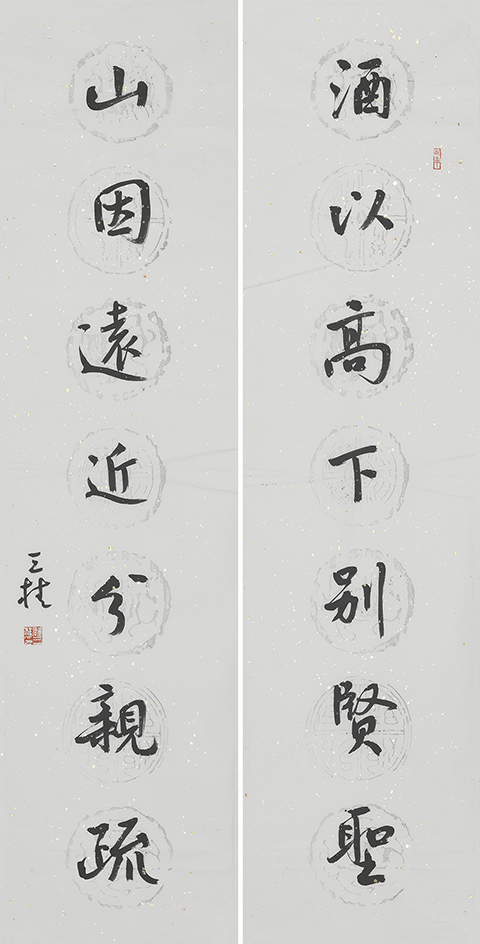 酒以高下別賢聖
山因遠近分親疏